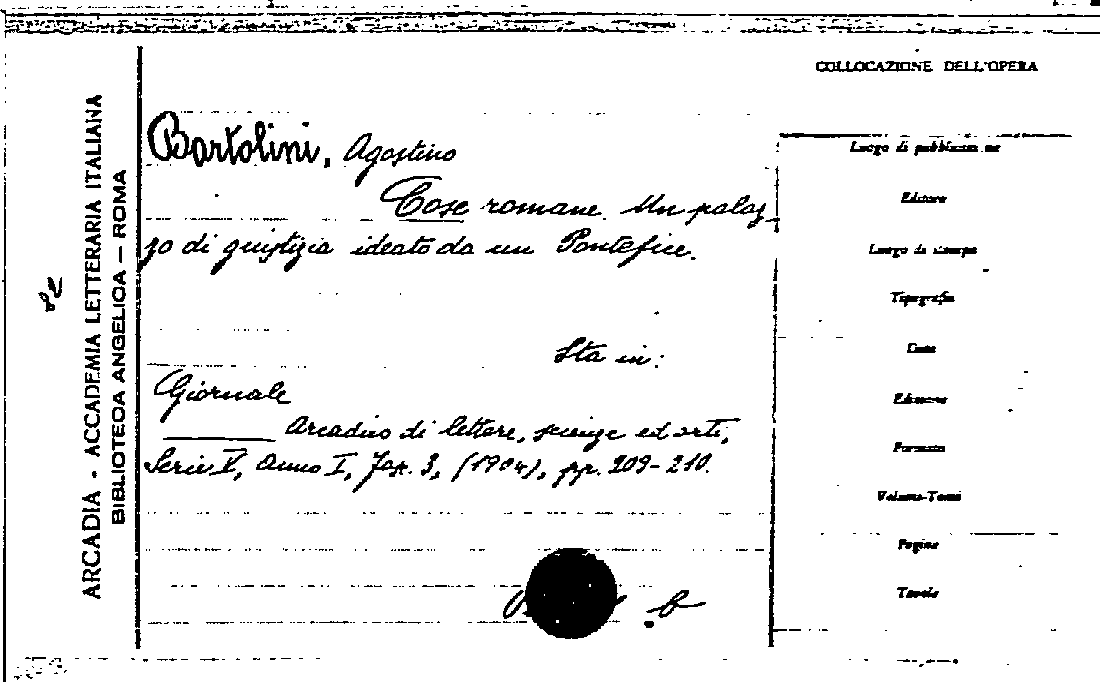 COLLOCAZIONE DELL'OPERA
ARCADIA - ACCADEMIA LETTERARIA ITALIANA
BIBLIOTECA ANGELICA — ROMA
Bartolini, Agostino
Cose romane. Un palaz-
zo di giustizia ideato da un Pontefice.
Sta in:
Giornale
Arcadico di lettere, scienze ed arti,
Serie V, Anno I, Fasc. 3, (1904), pp. 209-210.
b
Luogo di pubblicazione
Editore
Luogo di stampa
Tipografia
Data
Edizione
Formato
Volume-Tomi
Pagine
Tavole